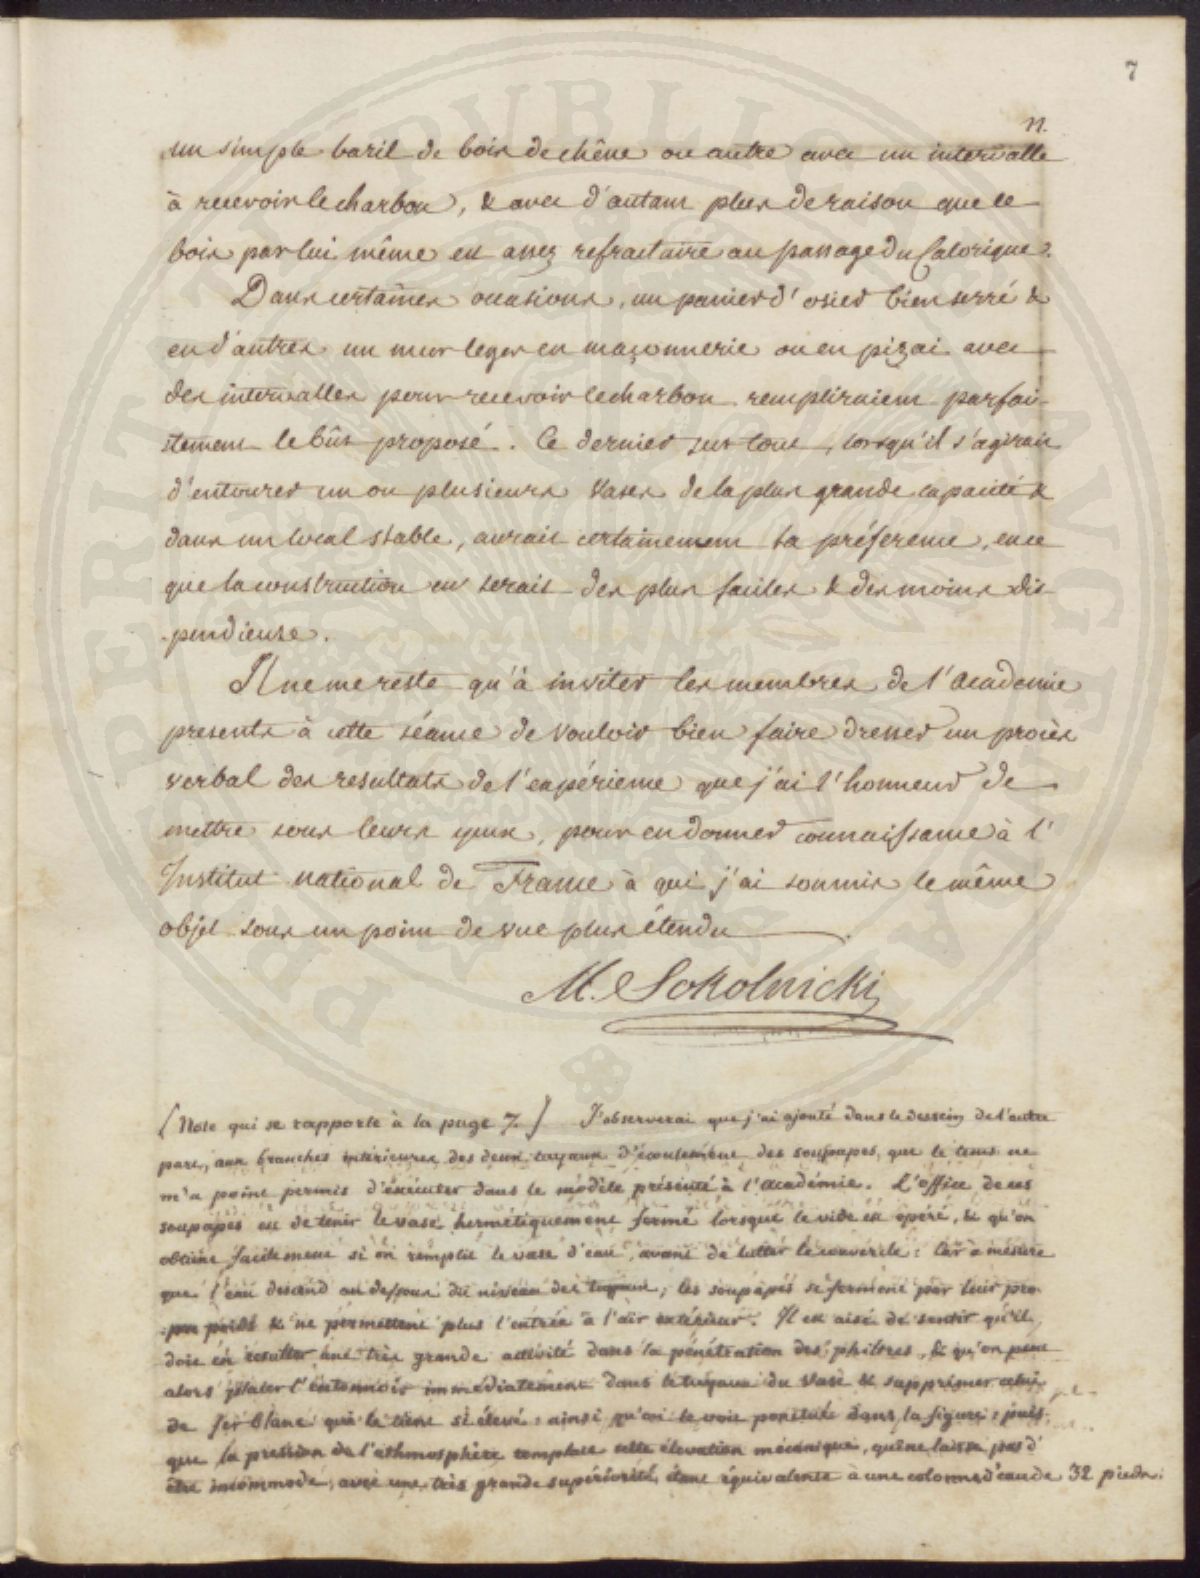 7
11.
un simple baril de bois de chêne ou autre avec un intervalle
à recevoir le charbon, & avec d'autant plus de raison que ce
bois par lui même est assez refractaire au passage du Calorique.
Dans certaines occasions, un panier d'osier bien serré &
en d'autres un mur leger en maçonnerie ou en pizai avec
des intervalles pour recevoir le charbon rempliraient parfai-
tement le bût proposé. Ce dernier sur tout, lorsqu'il s'agirait
d'entourer un ou plusieurs vases de la plus grande capacité &
dans un local stable, aurait certainement la préférence, en ce
que la construction en serait des plus faciles & des moins dis-
pendieuse.
Il ne me reste qu'à inviter les membres de l'Academie
presents à cette séance de vouloir bien faire dresser un procès
verbal des resultats de l'expérience que j'ai l'honneur de
mettre sous leurs yeux, pour en donner connaissance à l'
Institut national de France à qui j'ai soumis le même
objet sous un point de vue plus étendu.
M. Sokolnicki
(Note qui se rapporte à la page 7.) J'observerai que j'ai ajouté dans le dessein de l'autre
part, aux branches intérieures des deux tuyaux d'écoulement des soupapes, que le tems ne
m'a point permis d'exécuter dans le modèle présenté à l'académie. L'office de ces
soupapes est de tenir le vase hermétiquement fermé lorsque le vide est opéré, & qu'on
obtient facilement si on remplit le vase d'eau avant de lutter le couvercle: Car a mesure
que l'eau descend au dessous du niveau des tuyaux, les soupapes se ferment par leur pro-
pre poids & ne permettent plus l'entrée à l'air extérieur. Il est aisé de sentir qu'il
doit en resulter une très grande activité dans la pénétration des philtres, & qu'on peut
alors l'entonnoir immédiatement dans le tuyau du vase & supprimer celui
de fer blanc qui le tient si élevé: ainsi qu'on le voit ponctué dans la figure; puis-
que la pression de l'athmosphère remplace cette élevation mécanique, qui ne laisse pas d'
être incommode, avec une très grande supériorité, étant équivalente à une colonne d'eau de 32 pieds.